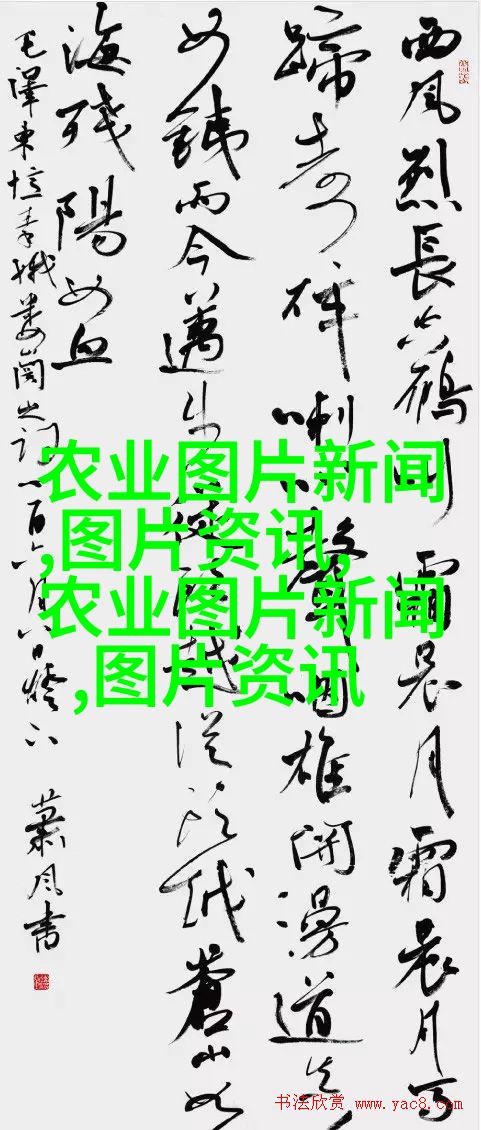 西風烈長空鴈叫霜晨月霜晨月馬
蹄声碎喇叭聲咽雄關漫道真
如鐵而今邁步從頭越從頭越蒼山如
海殘陽如血
毛澤東憶秦娥婁關之詞一百六月八日燈下 蕭風書
农业图片新闻
,图片资讯,
农业图片新闻
,图片资讯
书法欣赏 www.yac8.com